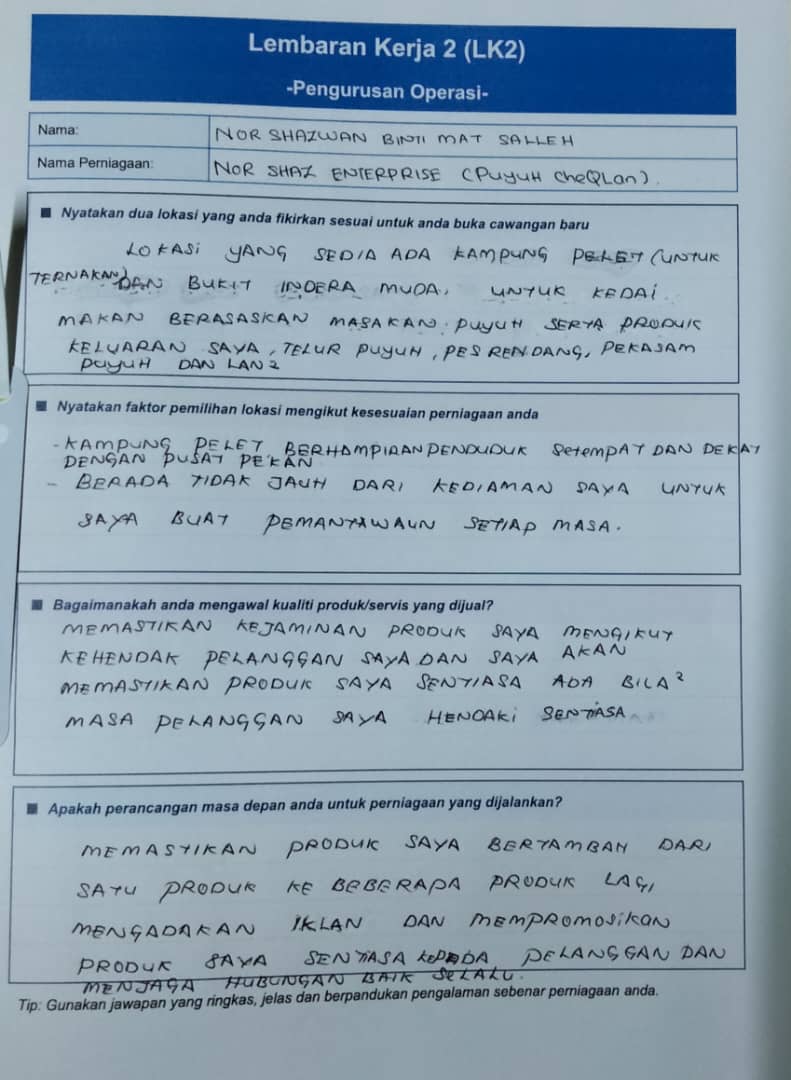 Lembaran Kerja 2 (LK2)
-Pengurusan Operasi-
Nama: NOR SHAZWAN BINTI MAT SALLEH
Nama Perniagaan: NOR SHAZ ENTERPRISE (PUYUH CheQLan).
■ Nyatakan dua lokasi yang anda fikirkan sesuai untuk anda buka cawangan baru
LOKASI YANG SEDIA ADA KAMPUNG PELET (UNTUK
TERNAKAN) DAN BUKIT INDERA MUDA, UNTUK KEDAI
MAKAN BERASASKAN MASAKAN PUYUH SERTA PRODUK
KELUARAN SAYA, TELUR PUYUH, PES RENDANG, PEKASAM
PUYUH DAN LAN2
■ Nyatakan faktor pemilihan lokasi mengikut kesesuaian perniagaan anda
- KAMPUNG PELET BERHAMPIRAN PENDUDUK SETEMPAT DAN DEKAT
DENGAN PUSAT PEKAN
- BERADA TIDAK JAUH DARI KEDIAMAN SAYA UNTUK
SAYA BUAT PEMANTAWAUN SETIAP MASA.
■ Bagaimanakah anda mengawal kualiti produk/servis yang dijual?
MEMASTIKAN KEJAMINAN PRODUK SAYA MENGIKUT
KEHENDAK PELANGGAN SAYA DAN SAYA AKAN
MEMASTIKAN PRODUK SAYA SENTIASA ADA BILA²
MASA PELANGGAN SAYA HENDAKI SENTIASA
■ Apakah perancangan masa depan anda untuk perniagaan yang dijalankan?
MEMASTIKAN PRODUK SAYA BERTAMBAH DARI
SATU PRODUK KE BEBERAPA PRODUK LAGI,
MENGADAKAN IKLAN DAN MEMPROMOSIKAN
PRODUK SAYA SENTIASA KEPADA PELANGGAN DAN
MENJAGA HUBUNGAN BAIK SELALU.
Tip: Gunakan jawapan yang ringkas, jelas dan berpandukan pengalaman sebenar perniagaan anda.